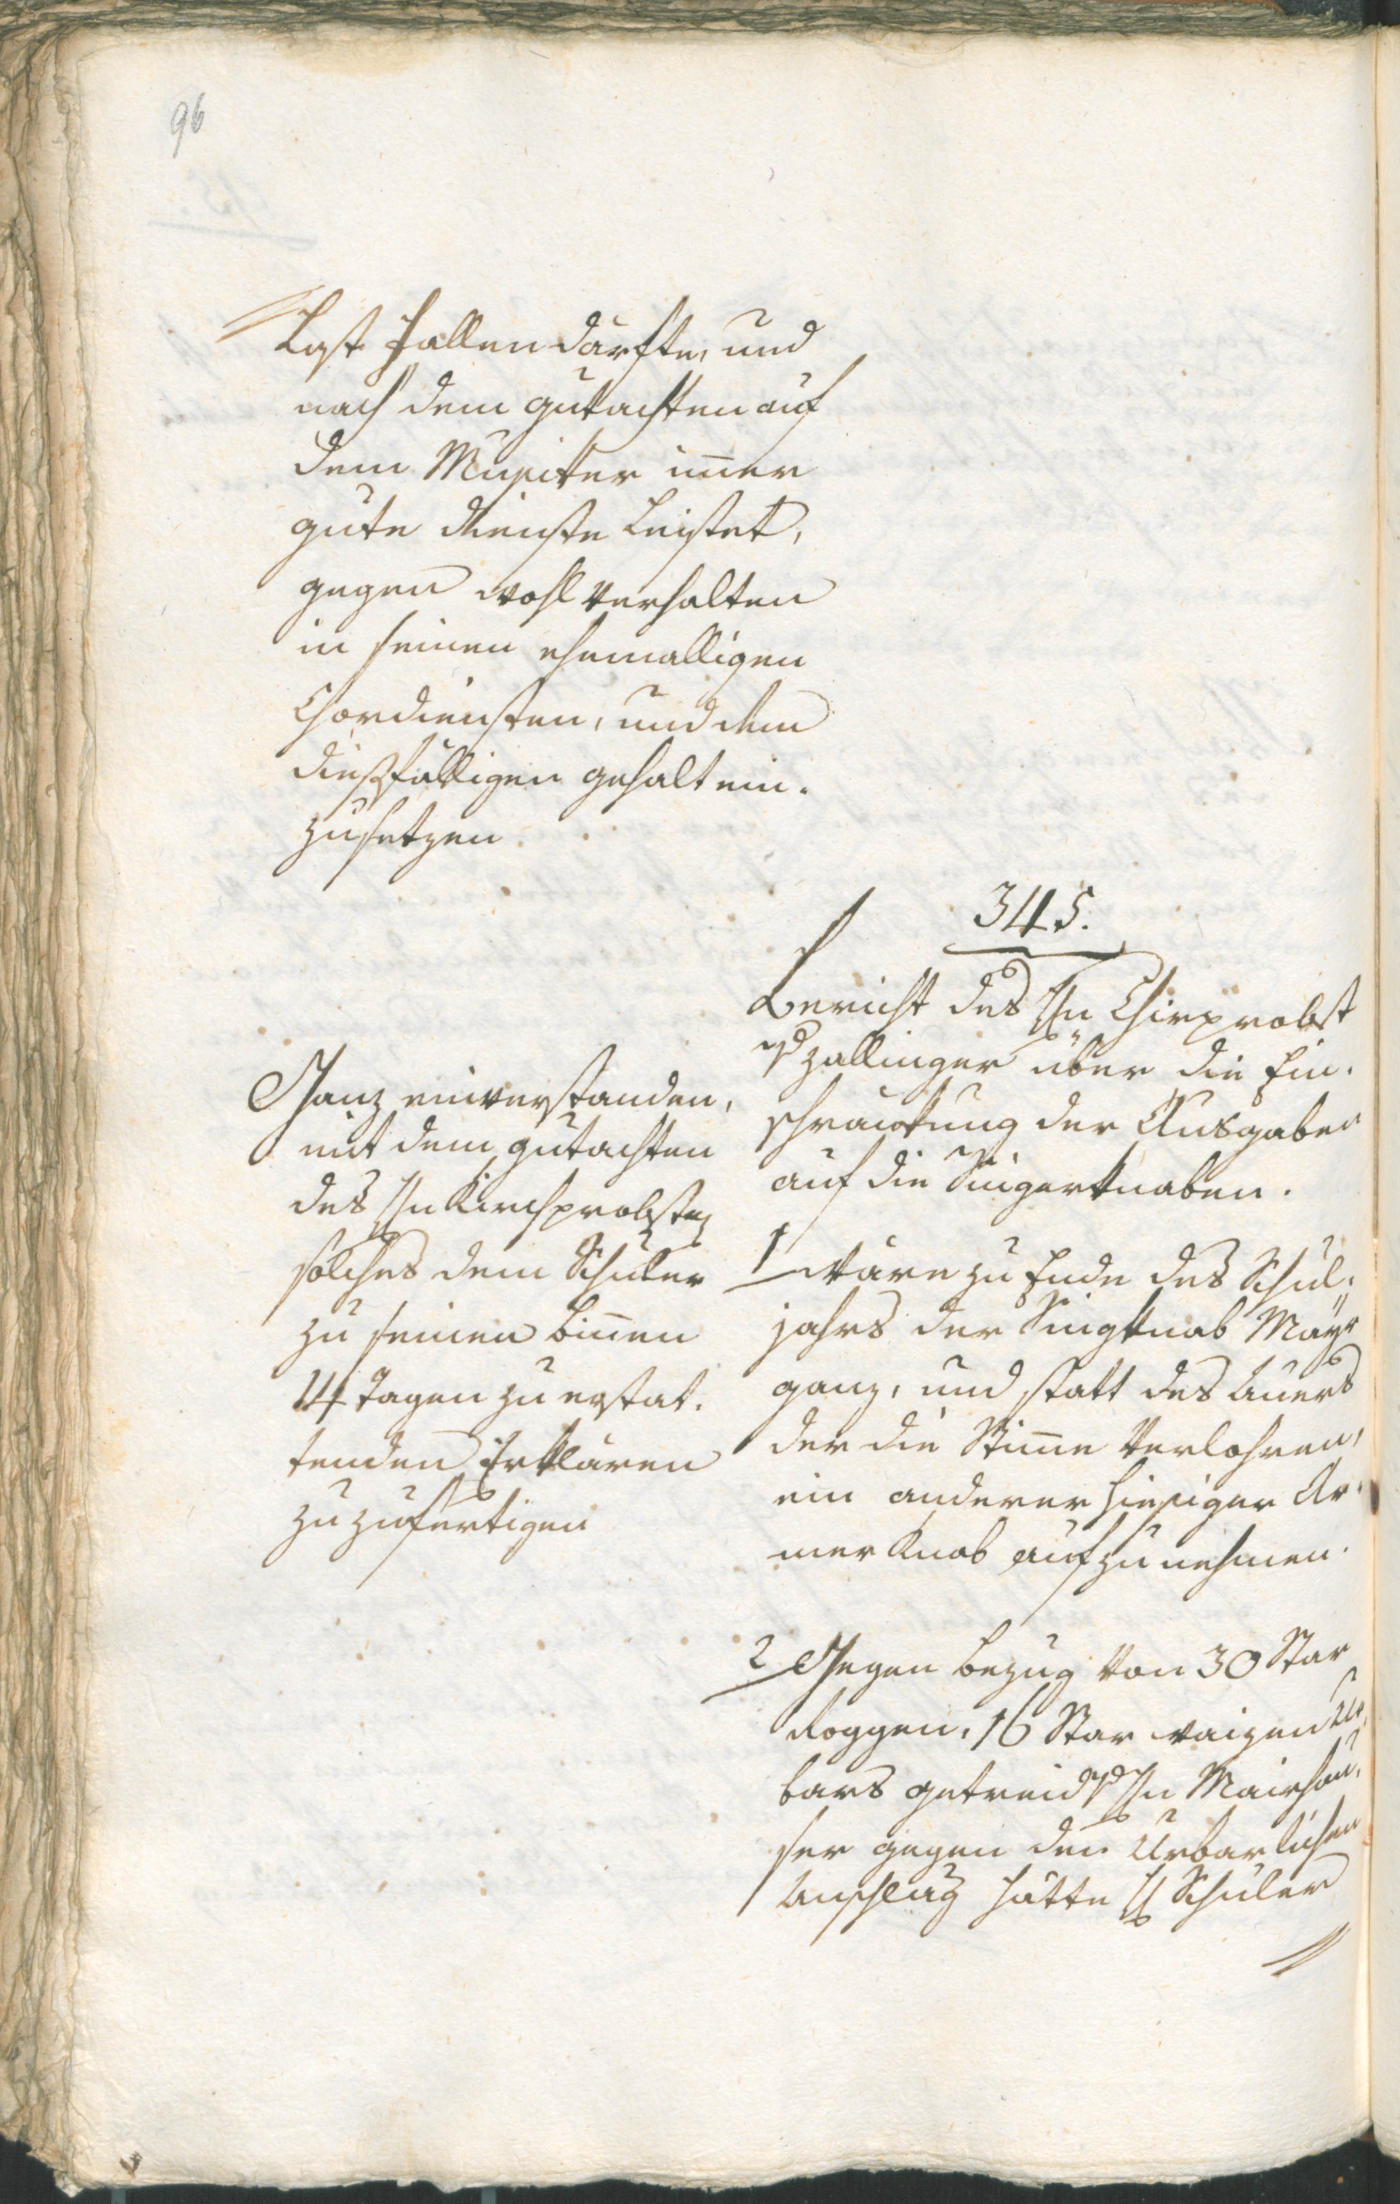 96
Last fallen därfte, und
nach dem gutachten auf
dem Musikter im̅er
gute dienste Leistet,
gegen wohlverhalten
in seinen ehemalligen
Chordiensten, und dem
dießfälligen gehalt ein-
zusetzen
345.
Bericht des Hn Chirprobst
v Zallinger über die Ein-
schränkung der Ausgaben
auf die Singerknaben.
1 wäre zu Ende des Schul-
jahrs der Singknab Mayr
ganz, und statt des Auers
der die Stim̅e Verlohren,
ein anderer hiesiger Ar-
mer Knab aufzunehmen.
2 Gegen bezug von 30 Star
Roggen, 16 Star waizen Ur-
bars getreid v Hn Mairhau-
ser gegen den Urbarlichen
Anschlag hätte H Schuler
Ganz einverstanden,
mit dem gutachten
des Hn Kirchprobsten
solches dem Schuler
zu seinen bin̅en
14 Tagen zu erstat-
tenden Erklären
zuzufertigen